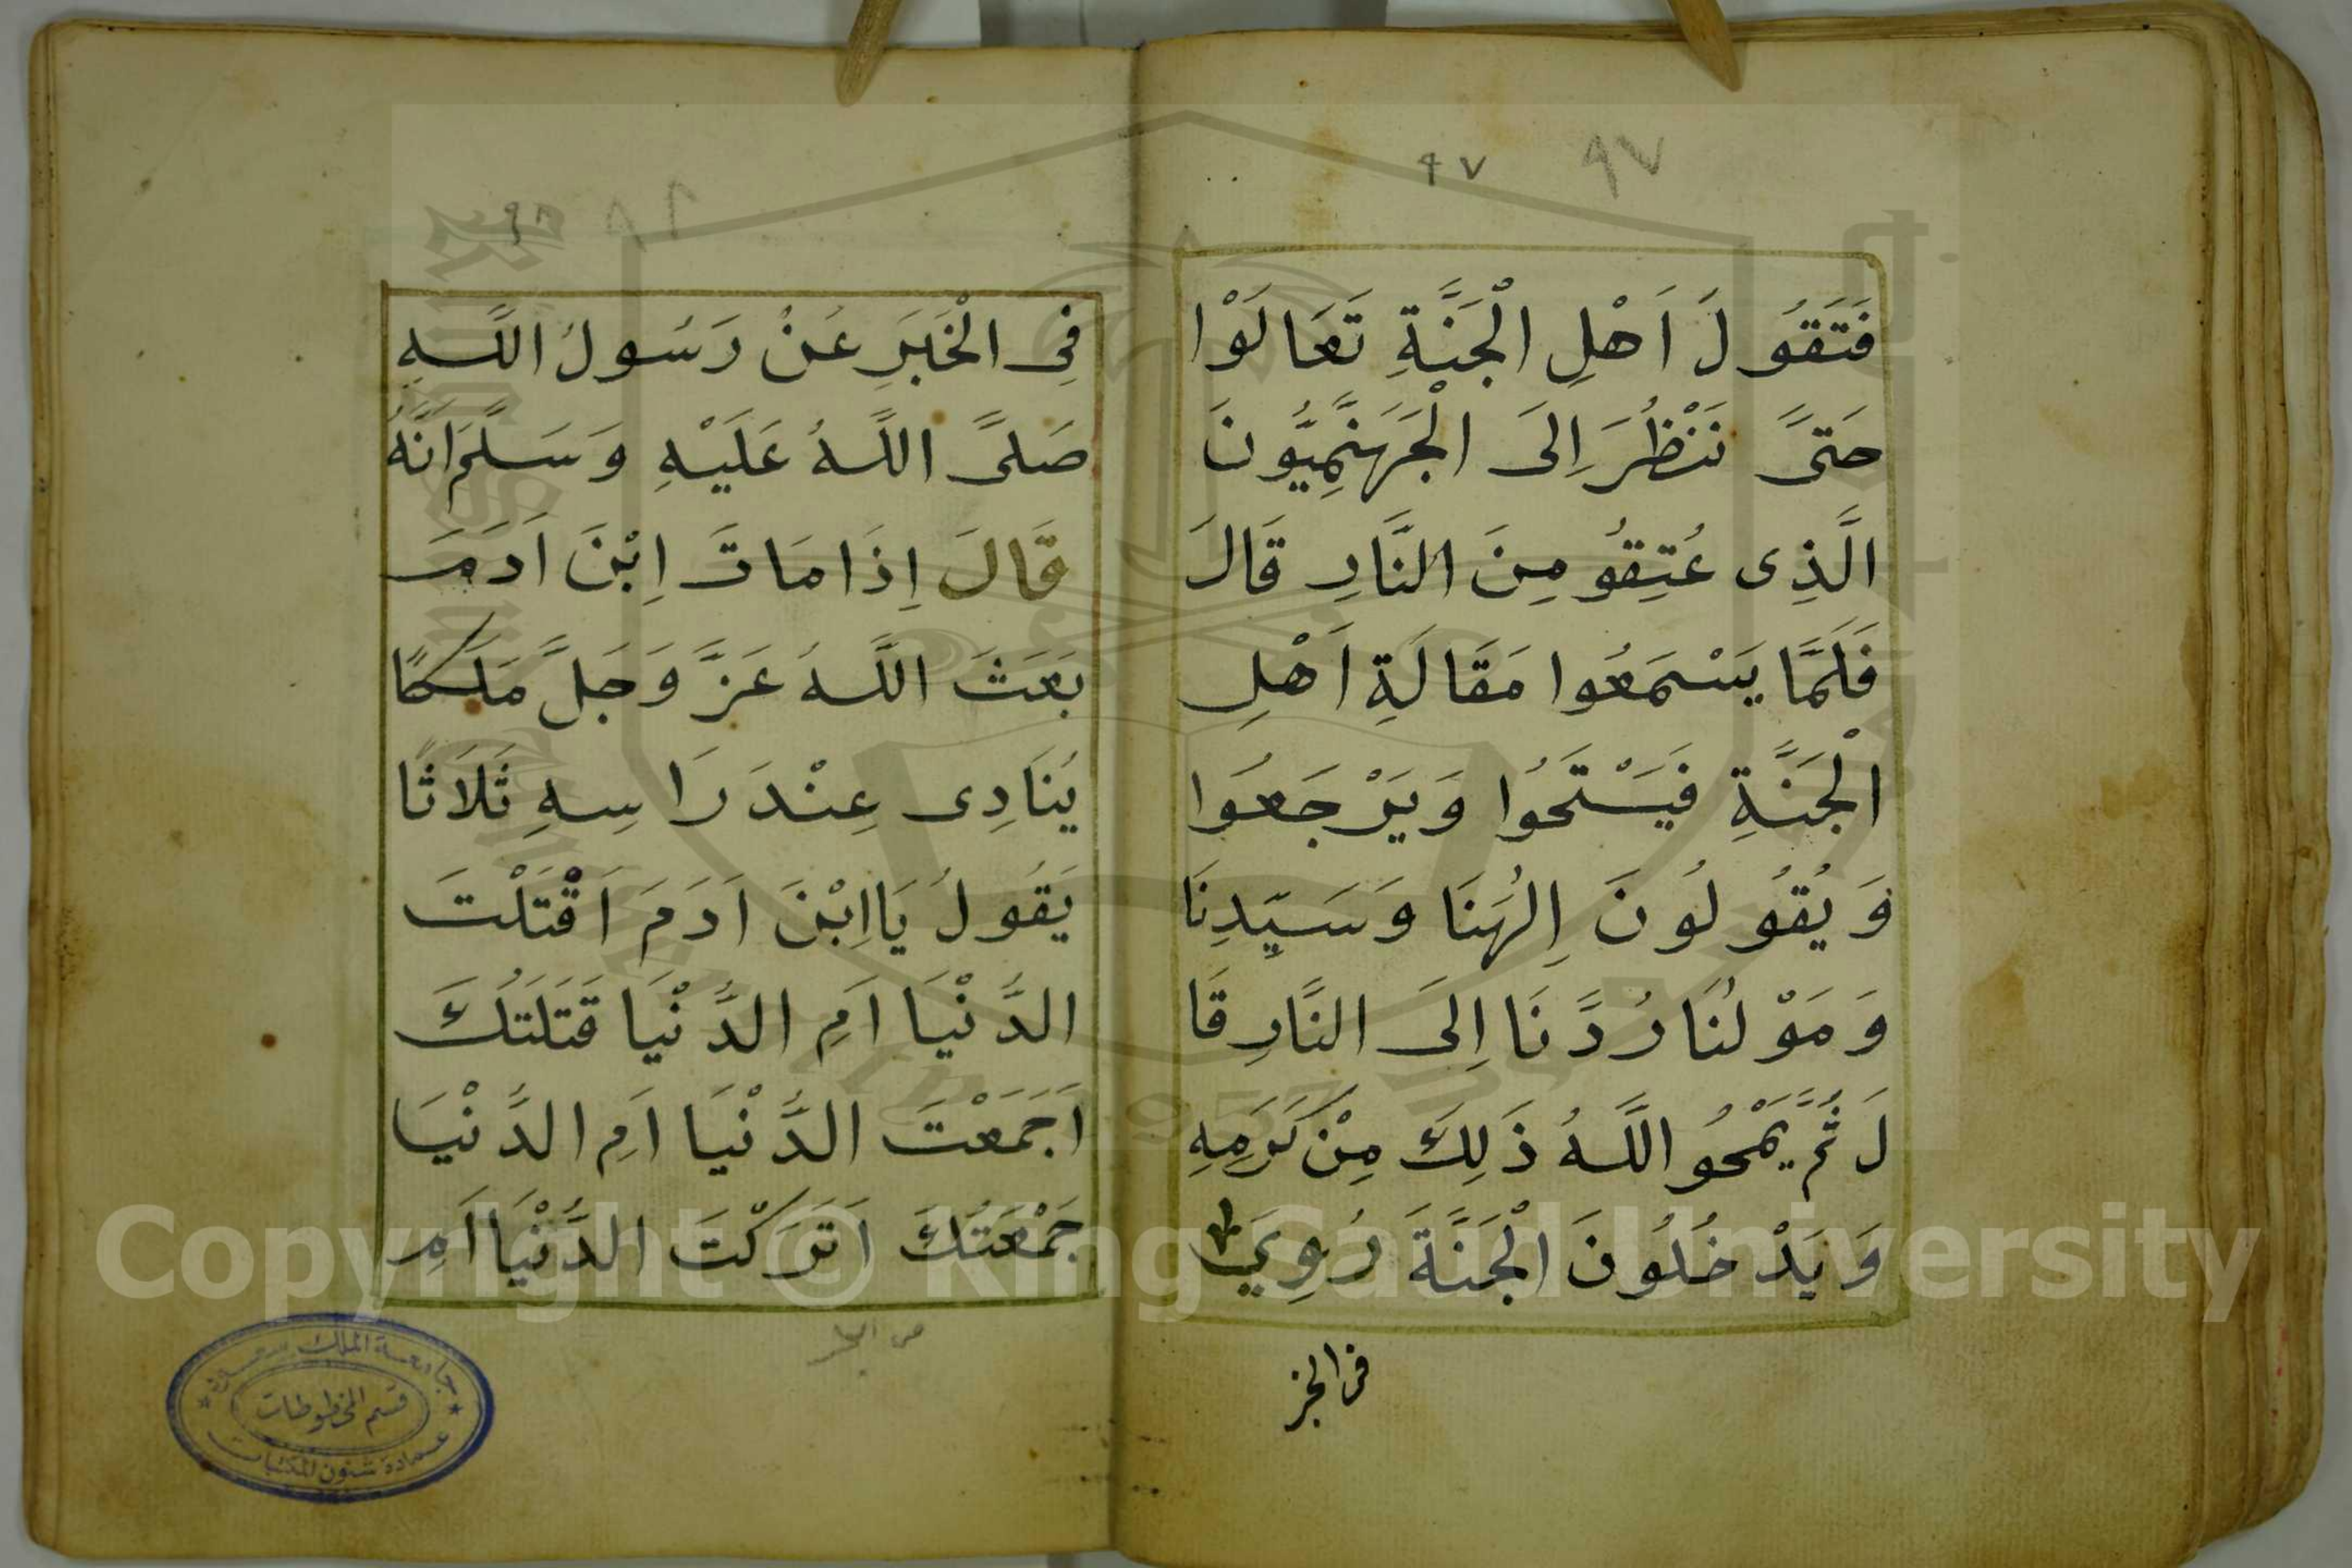 ٩٧ ٩٧
فَتَقُولَ اَهْلِ الْجَنَّةِ تَعَالَوْا
حَتىَّ نَنْظُرَ اِلىَ الْجَهَنَّمِيُّونَ
الَّذِى عُتِقُو مِنَ النَّارِ قَالَ
فَلَمَّا يَسْمَعُوا مَقَالَةِ اَهْلِ
الْجَنَّةِ فَيَسْتَحُوا وَيَرْجَعُوا
وَيُقُولُونَ اِلٰهَنَا وَسَيِّدِنَا
وَمَوْلٰنَا رُدَّنَا اِلىَ النَّارِ قَا
لَ ثُمَّ يَمْحُو اللَّهُ ذَلِكَ مِنْ كَرَمِهِ
وَيَدْخُلُونَ الْجَنَّةَ رُوِيَ
فى الخبر
٩٨
فِى الْخَبَرِ عَنْ رَسُولُ اللَّهِ
صَلىَّ اللَّهُ عَلَيْهِ وَسَلَّمَ اَنَّهُ
قَالَ اِذَا مَاتَ اِبْنَ اَدَمَ
بَعَثَ اللَّهُ عَزَّ وَجَلَّ مَلَكًا
يُنَادِى عِنْدَ رَاسِهِ ثَلَاثًا
يَقُولُ يَا اِبْنَ اَدَمَ اَقْتَلْتَ
الدُّنْيَا اَمِ الدُّنْيَا قَتَلَتُكَ
اَجَمَعْتَ الدُّنْيَا اَمِ الدُّنْيَا
جَمْعَتُكَ اَتَرَكْتَ الدُّنْيَا اَمِ
جامعة الملك سعود
قسم المخطوطات
عمادة شئون المكتبات
Copyright © King Saud University